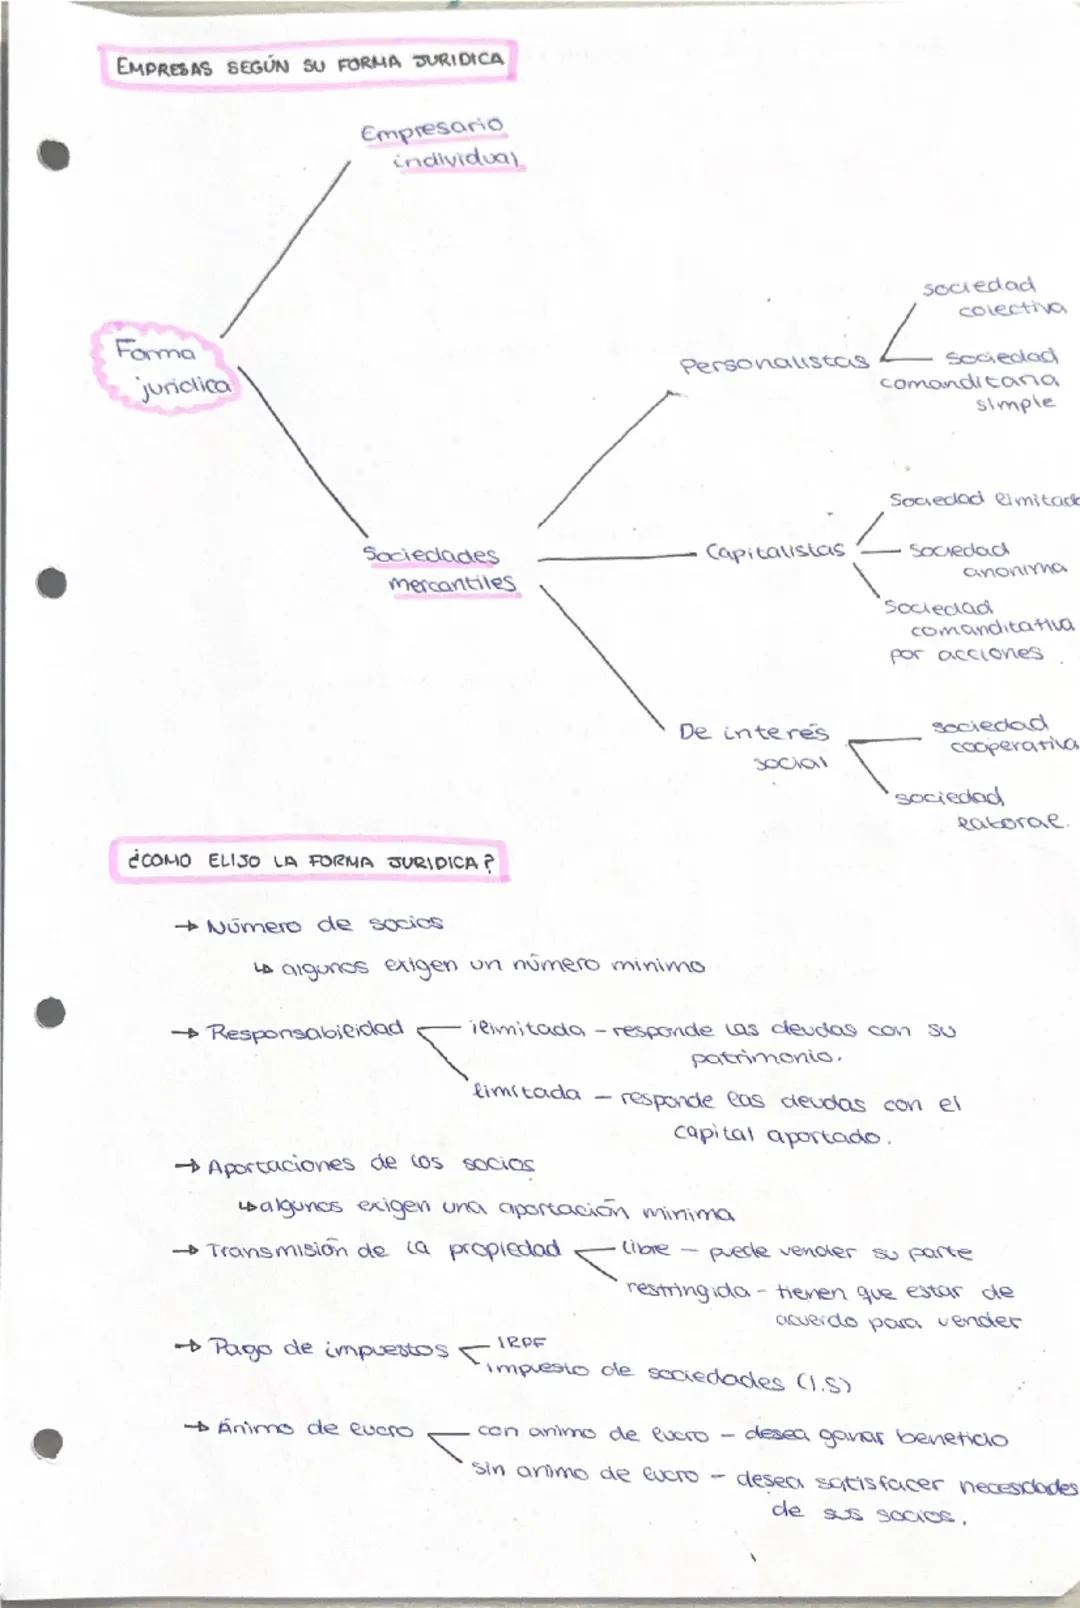 EMPRESAS SEGÚN SU FORMA JURIDICA
Empresario
individual
Forma
jurídica
Sociedades
mercantiles
Personalistas
sociedad
colectiva
Sociedad
comanditaria
simple
Capitalistas
Sociedad limitada
Sociedad
anonima
Sociedad
comanditativa
por acciones
De interés
social
sociedad
cooperativa
sociedad
laboral.
¿COMO ELIJO LA FORMA JURIDICA?
→ Número de socios
↳ algunos exigen un número minimo
→ Responsabilidad
ilimitada - responde las deudas con su
patrimonio.
limitada - responde las deudas con el
capital aportado.
→ Aportaciones de los socios
↳ algunos exigen una aportación minima
→ Transmisión de la propiedad
libre - puede vender su parte
restringida - tienen que estar de
acuerdo para vender
→ Pago de impuestos
IRPF
impuesto de sociedades (I.S)
→ Ánimo de lucro
con animo de lucro - desea ganar beneficio
sin animo de lucro - desea satisfacer necesidades
de sus socios.